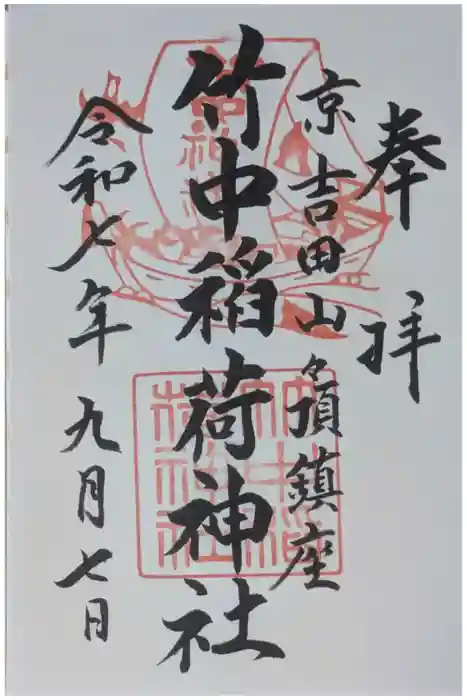 奉拝
京吉田山々頂鎮座
竹中稲荷神社
令和七年九月七日